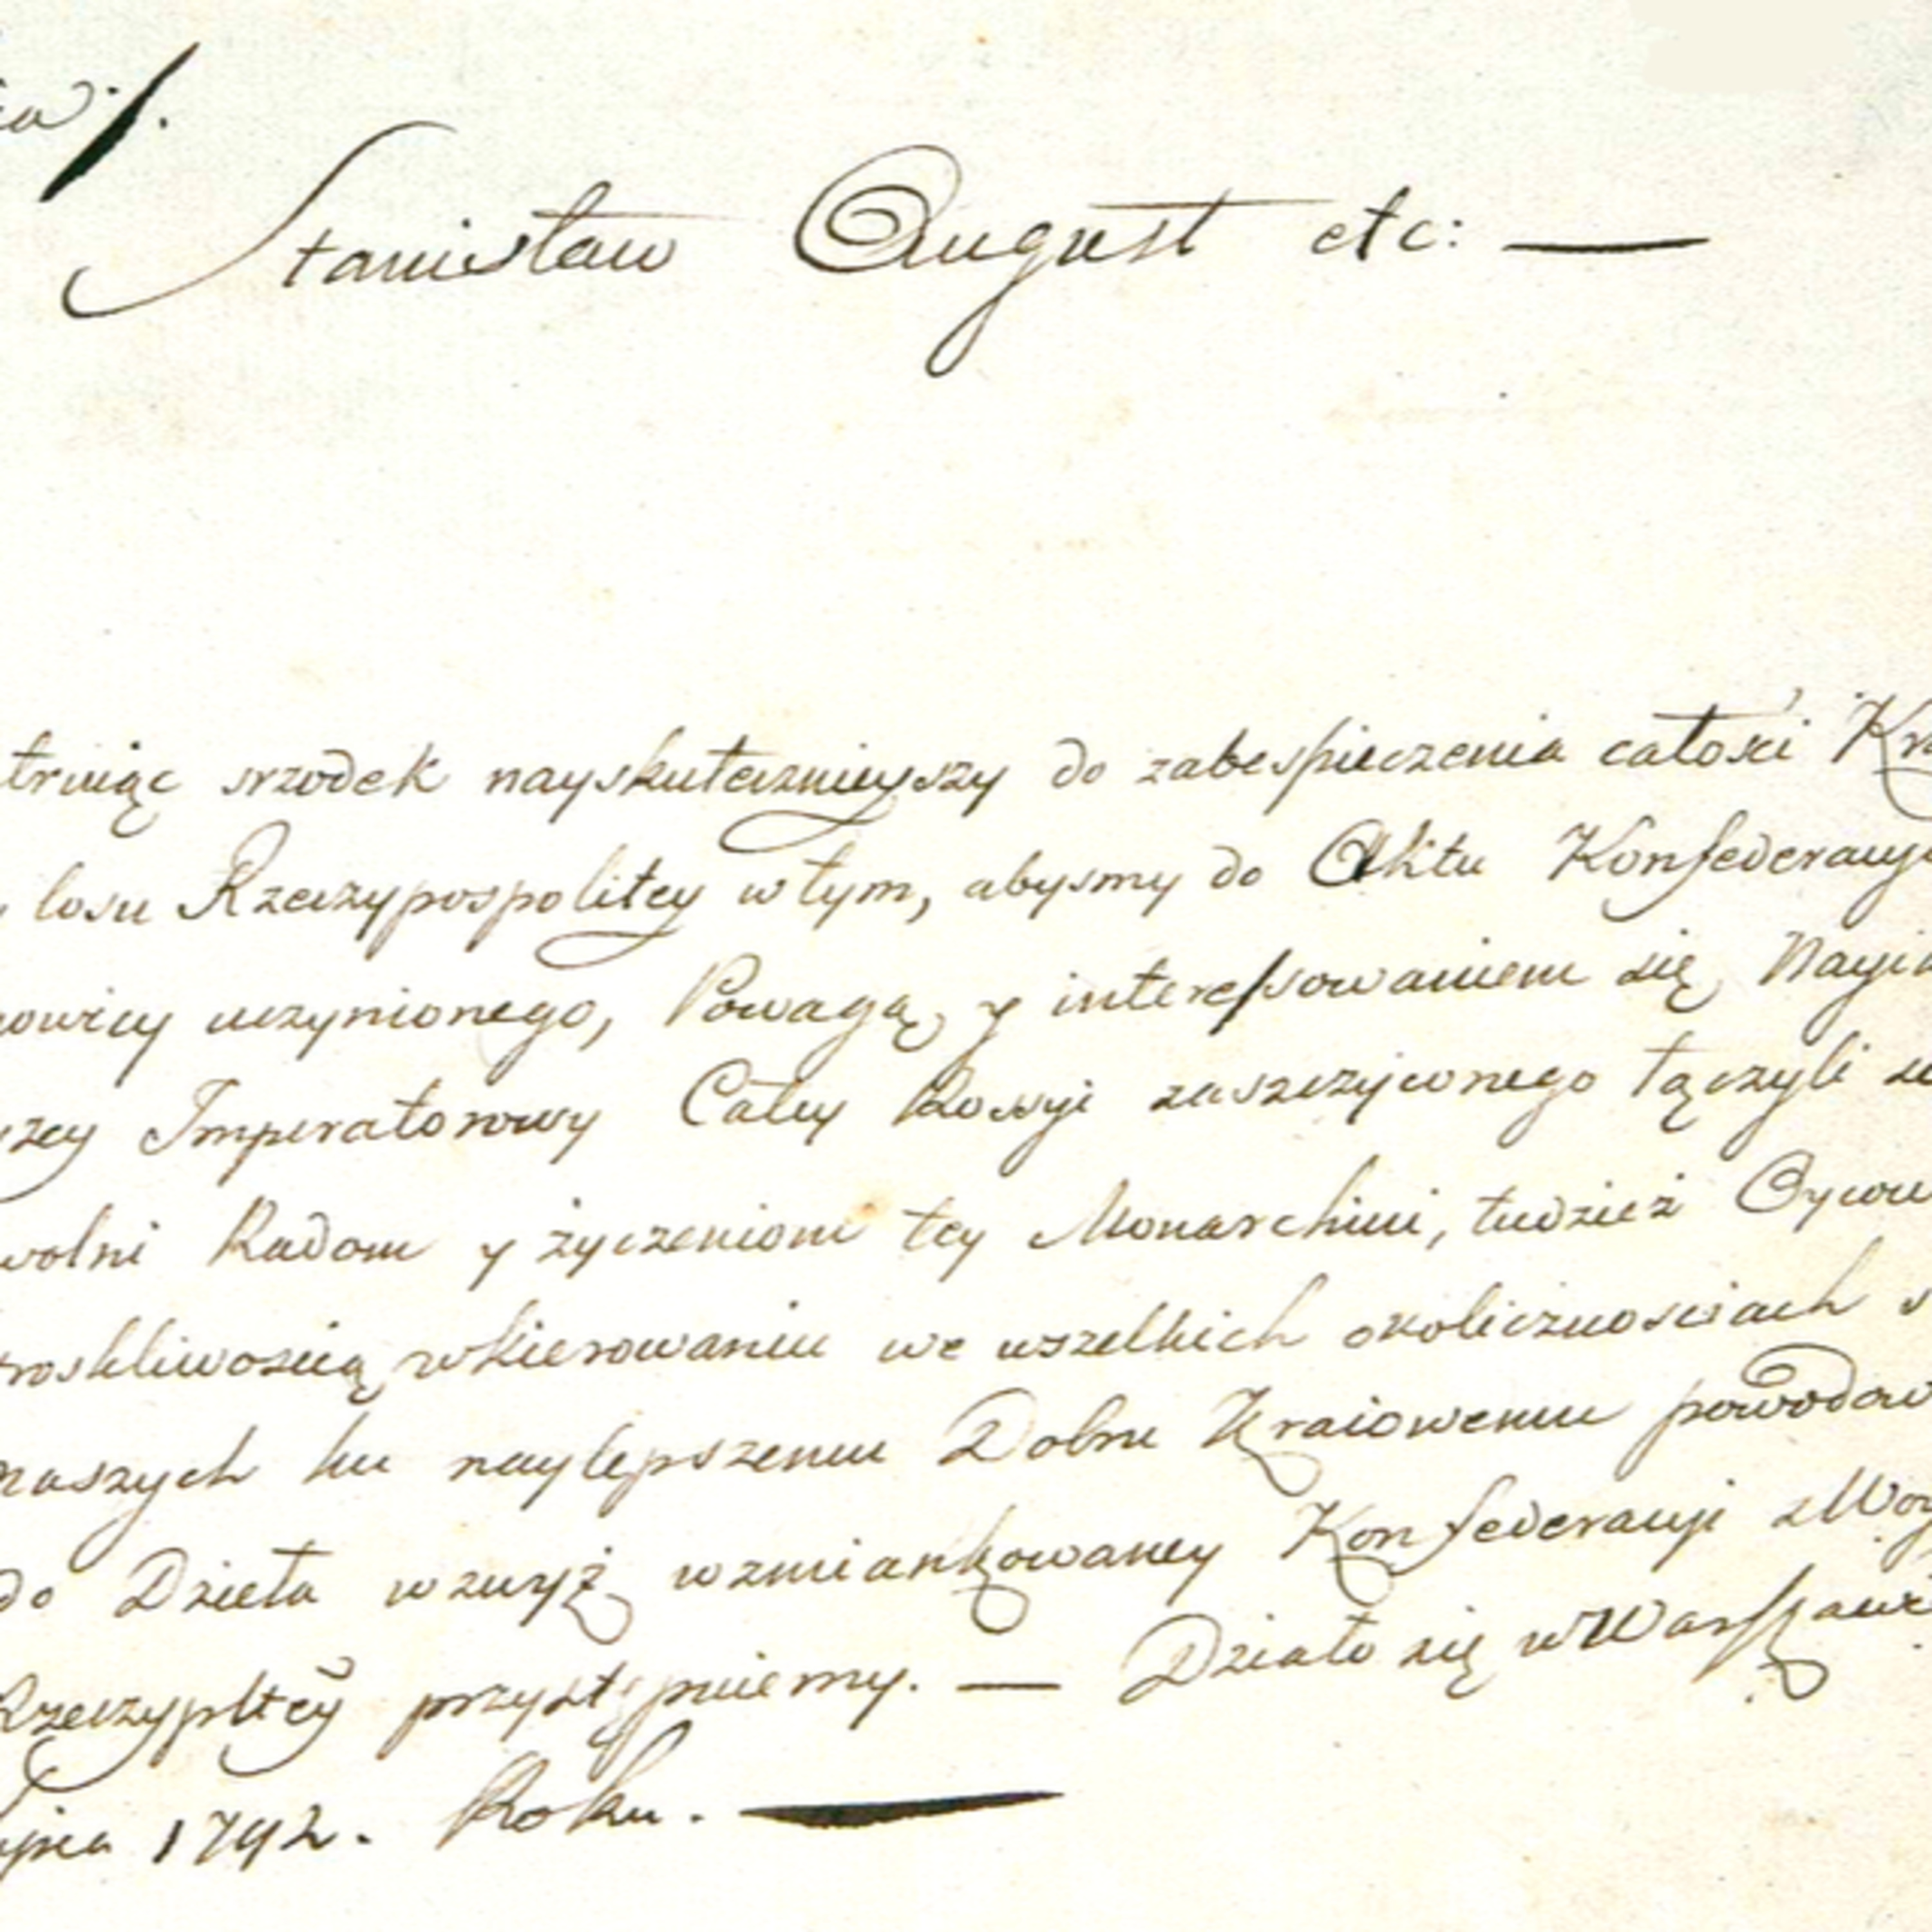 Stanisław August etc: —
srzodek nayskutecznieyszy do zabespieczenia całości
losu Rzeczypospolitey w tym, abysmy do Aktu Konfederacyi
uczynionego, Powagą y interessowaniem się Nayia
Imperatorowy Całey Rossyi zaszczyconego łączyli
wolni Radom y życzeniom tey Monarchini, tudzież Oycow
troskliwoscią w kierowaniu we wszelkich okolicznosciach
naszych ku naylepszemu Dobru Kraiowemu powodow
do Dzieła wzwyż wzmiankowaney Konfederacyi z Woy
Rzeczypltey przystępuiemy. — Działo się w Warszawie
1792. Roku. —